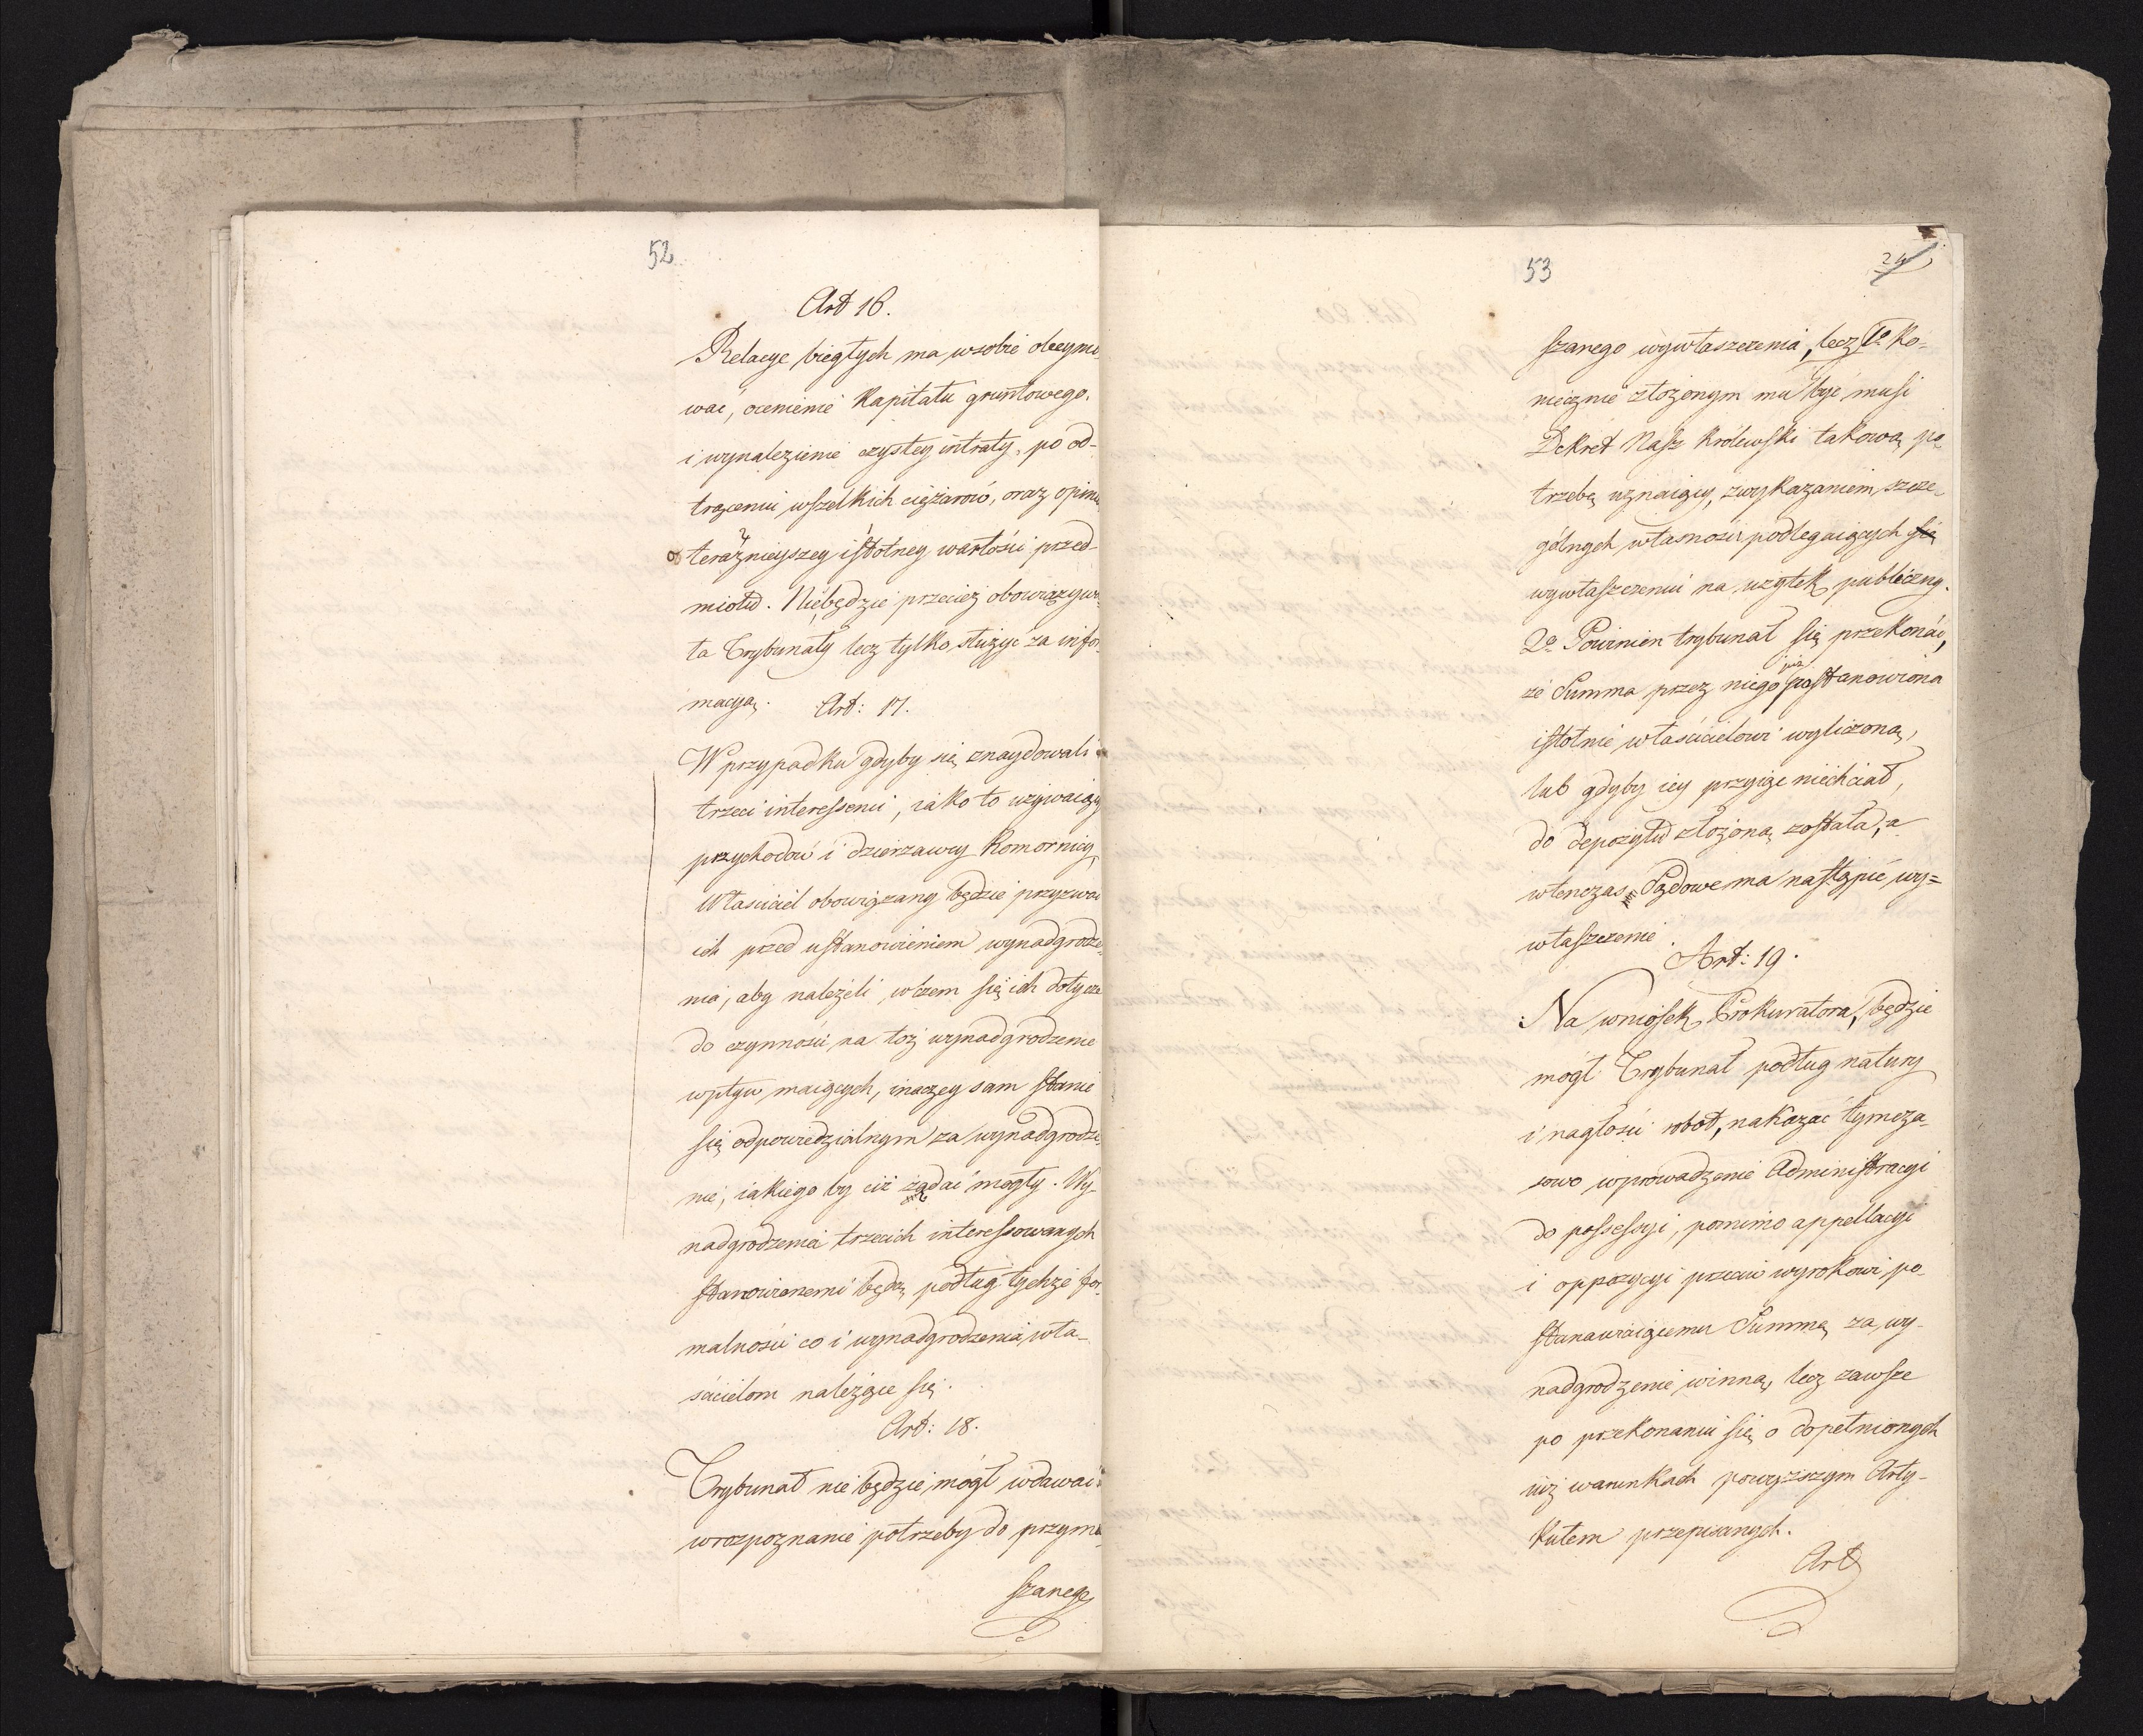 52
Art 16.
Relacye biegłych ma w sobie obeymo
wać, ocenienie Kapitału gruntowego,
i wynalezienie czystey intraty, po od-
trąceniu wszelkich ciężarow, oraz opinię
o teraznieyszey istotney wartości przed-
miotu. Niebędzie przecież obowiązywa-
ła Trybunały lecz tylko służyć za infor-
macyą.
Art: 17.
W przypadku gdyby się znaydowali
trzeci interessenci, iako to używaiący
przychodów i dzierzawcy Komornicy,
Właściciel obowiązany będzie przyzwać
ich przed ustanowieniem wynadgrodze-
nia, aby należeli w czem się ich dotycze
do czynności na toż wynadgrodzenie
wpływ maiących, inaczey sam stanie
się odpowiedzialnym za wynadgrodze
nie, iakiego by ciż żądać mogły. Wy-
nadgrodzenia trzecich interessowanych
stanowionemi będą podług tychże for-
malności co i wynadgrodzenia wła-
ścicielom należące się.
Art: 18.
Trybunał nie będzie mógł wdawać
w rozpoznanie potrzeby do przymu
szanego
53
24
szanego wywłaszczenia, lecz 1o Ko-
niecznie złożonym mu być musi
Dekret Nasz Królewski takową po-
trzebę uznaiący, z wykazaniem szcze-
gólnych własności podlegaiących się
wywłaszczeniu na użytek publiczny.
2o Powinien trybunał się przekonać,
że Summa przez niego już postanowiona
istotnie właścicielowi wyliczoną,
lub gdyby iey przyiąć niechciał,
do depozytu złożoną została, a
wtenczas Sądowe ma nastąpić wy=
właszczenie.
Art: 19.
Na wniosek Prokuratora, będzie
mógł Trybunał podług natury
i nagłości robot, nakazać tymcza-
sowo wprowadzenie Administracyi
do possessyi, pomimo appellacyi
i oppozycyi przeciw wyrokowi po-
stanawiaiącemu Summę za wy-
nadgrodzenie winną, lecz zawsze
po przekonaniu się o dopełnionych
iuż warunkach powyższym Arty-
kułem przepisanych.
Art